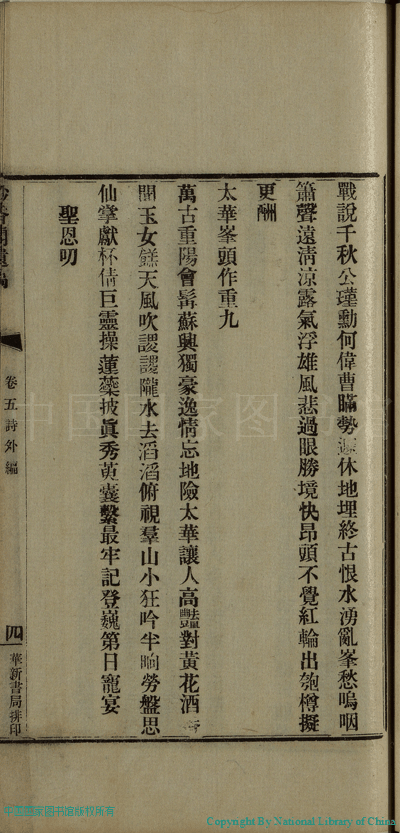 戰說千秋公瑾勳何偉曹瞞勢休地埋終古恨水湧亂峯愁嗚咽
簫聲遠淸涼露氣浮雄風悲過眼勝境快昂頭不覺紅輪出匏樽擬
更酬
太華峯頭作重九
萬古重陽會髯蘇興獨豪逸情忘地險太華讓人高豔對黃花酒
開玉女鎽天風吹謖謖隴水去滔滔俯視羣山小狂吟半晌勞盤思
仙掌獻杯倩巨靈操蓮蘂披眞秀萸囊繫最牢記登巍第日寵宴
聖恩叨
卷五詩外編
四
華新書局排印
中国国家图书馆版权所有
Copyright By National Library of China